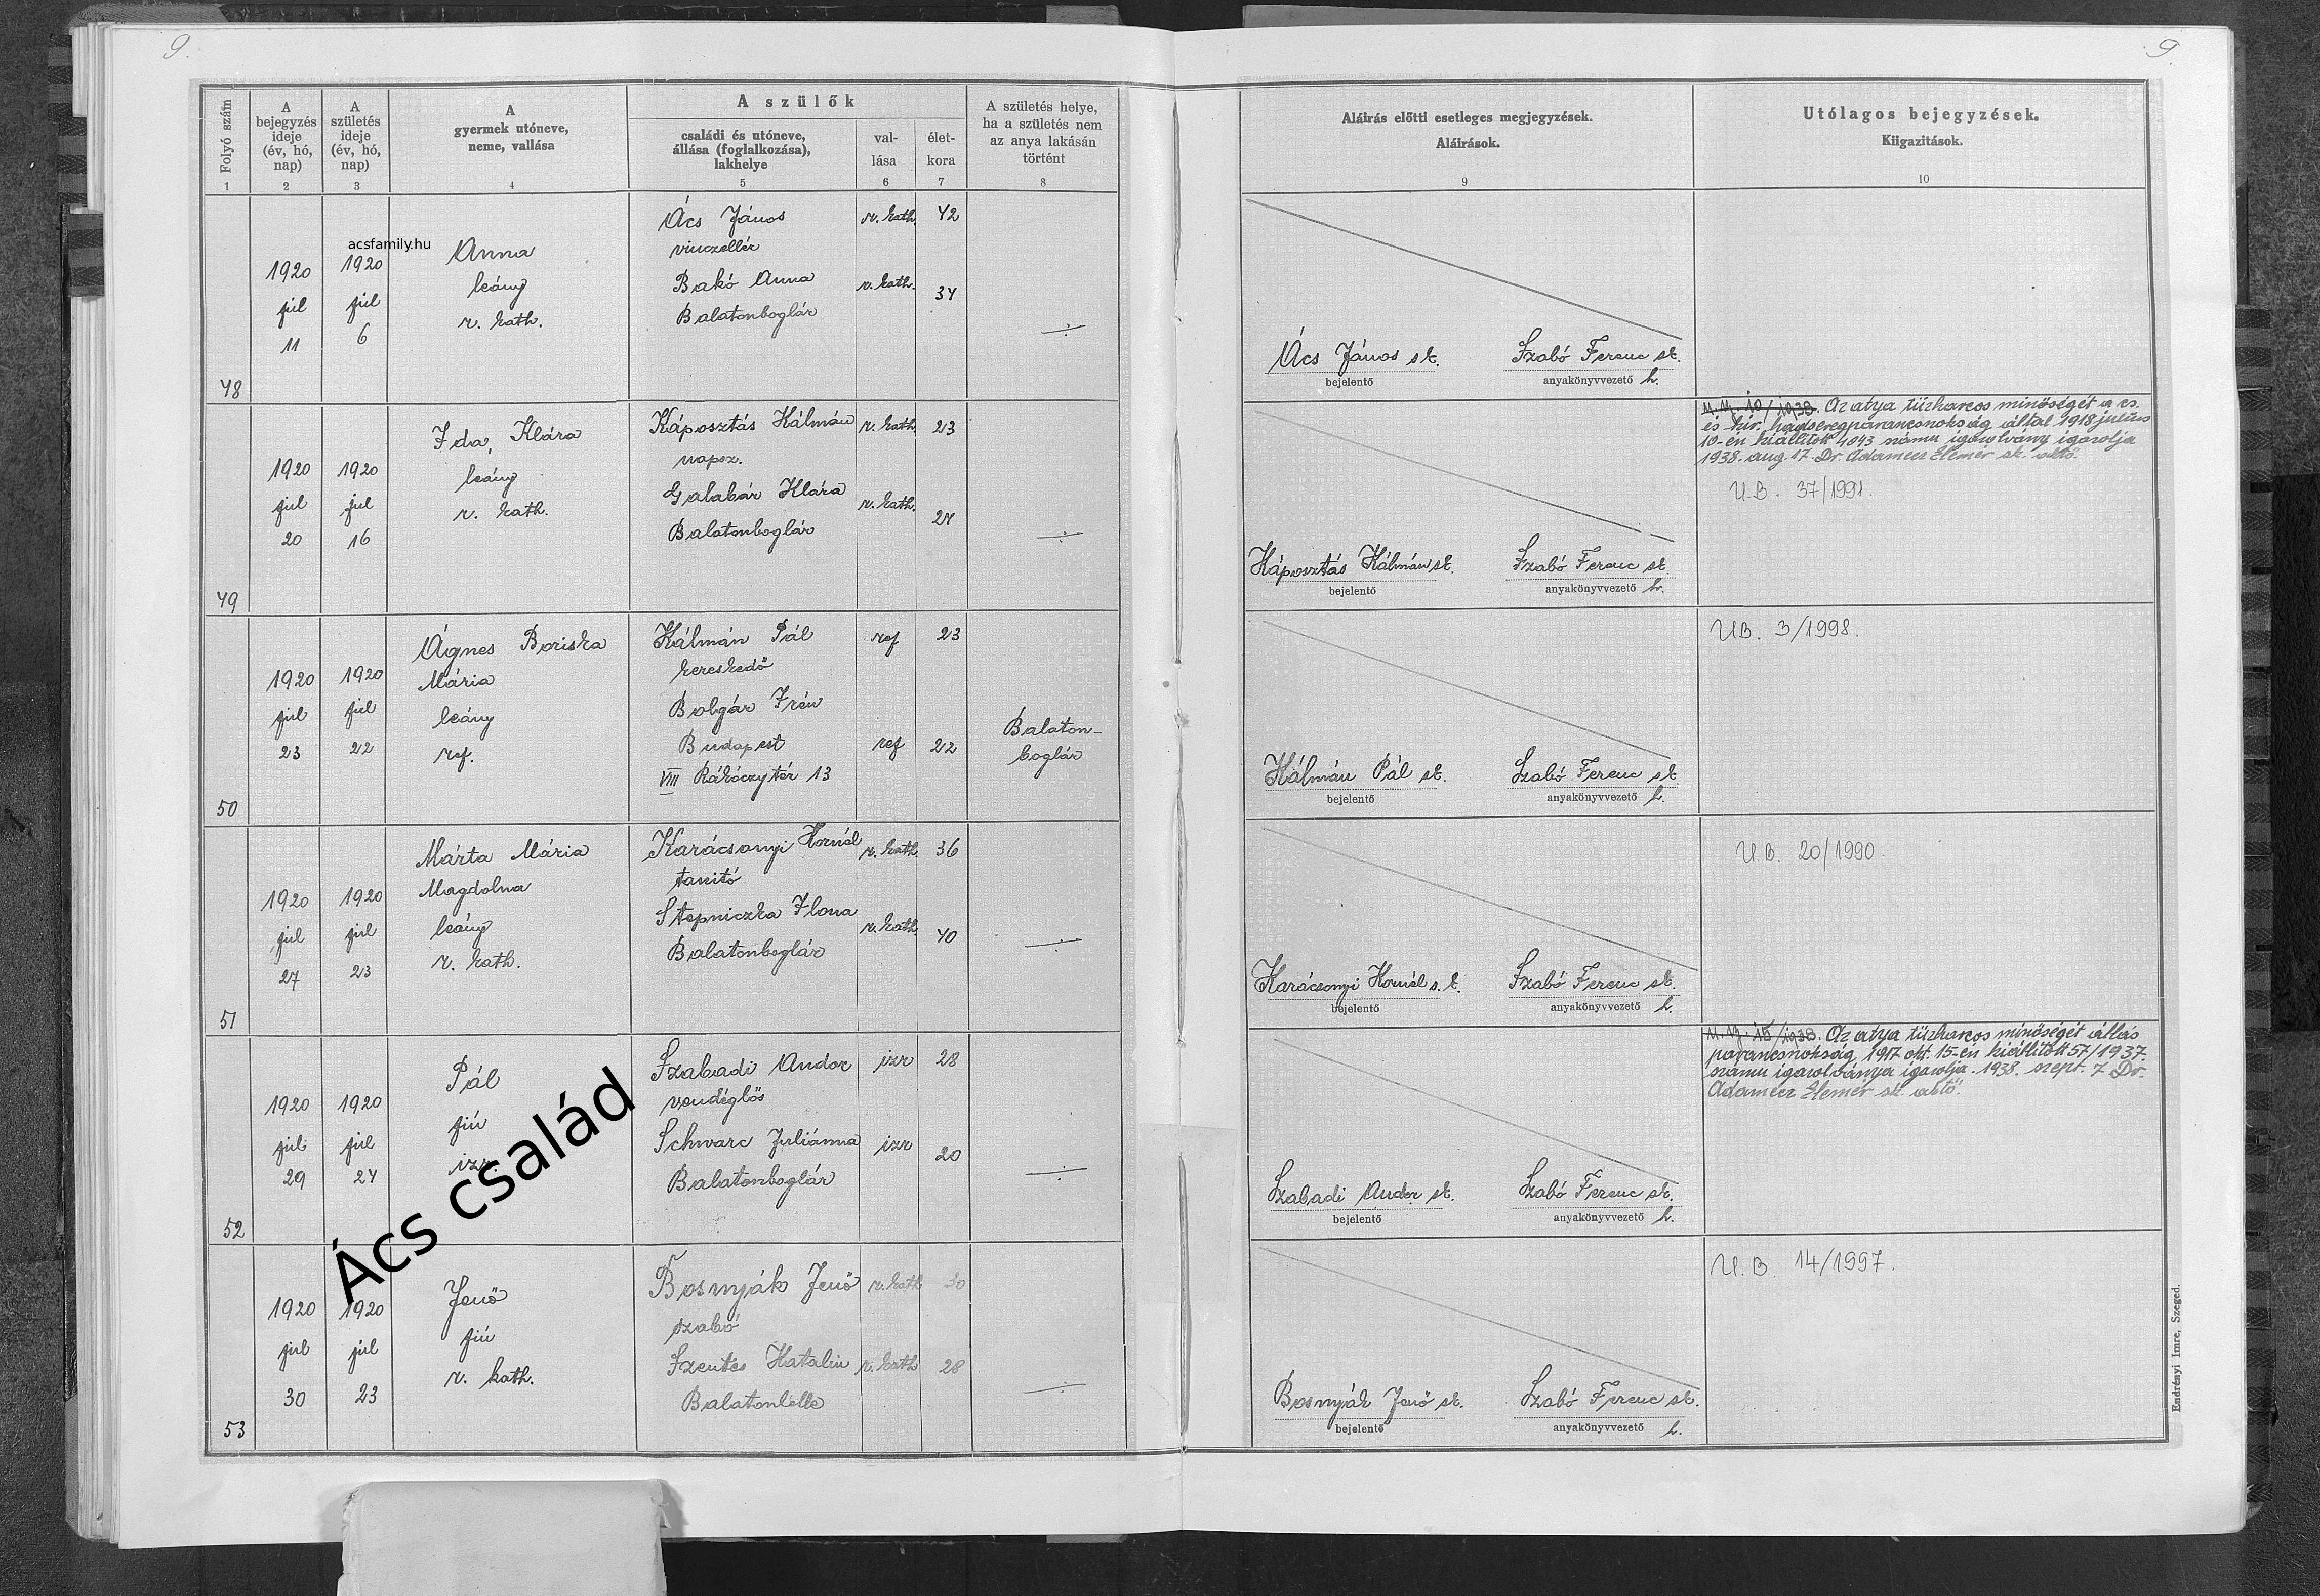 9.
9.
Folyó szám
1
A
bejegyzés
ideje
(év, hó,
nap)
2
A
születés
ideje
(év, hó,
nap)
3
A
gyermek utóneve,
neme, vallása
4
A szülők
családi és utóneve,
állása (foglalkozása),
lakhelye
5
val-
lása
6
élet-
kora
7
A születés helye,
ha a születés nem
az anya lakásán
történt
8
Aláirás előtti esetleges megjegyzések.
Aláirások.
9
Utólagos bejegyzések.
Kiigazitások.
10
acsfamily.hu
48
1920
jul
11
1920
jul
6
Anna
leány
r. kath.
Ács János
vinczellér
Bakó Anna
Balatonboglár
r. kath.
r. kath.
42
34
Ács János sk.
bejelentő
Szabó Ferenc sk.
anyakönyvvezető h.
49
1920
jul
20
1920
jul
16
Ida, Klára
leány
r. kath.
Káposztás Kálmán
napsz.
Galabár Klára
Balatonboglár
r. kath.
r. kath.
23
24
Káposztás Kálmán sk.
bejelentő
Szabó Ferenc sk.
anyakönyvvezető h.
10/1938. Az atya tűzharcos minőségét a cs.
és kir. hadseregparancsnokság által 1918 julius
10-én kiállított 4043 számu igazolvány igazolja
1938. aug. 17. Dr. Adamecz Elemér sk. aktő.
U.B. 37/1991.
50
1920
jul
23
1920
jul
22
Ágnes Boriska
Mária
leány
ref.
Kálmán Pál
kereskedő
Bolgár Irén
Budapest
VIII Rákóczy tér 13
ref
ref
23
22
Balaton-
boglár
Kálmán Pál sk.
bejelentő
Szabó Ferenc sk
anyakönyvvezető h.
UB. 3/1998.
51
1920
jul
27
1920
jul
23
Márta Mária
Magdolna
leány
r. kath.
Karácsonyi Kornél
tanító
Stepniczka Ilona
Balatonboglár
r. kath.
r. kath.
36
40
Karácsonyi Kornél s. k.
bejelentő
Szabó Ferenc sk.
anyakönyvvezető h.
U.B. 20/1990.
52
1920
jul
29
1920
jul
24
Pál
fiú
izr.
Szabadi Andor
vendéglős
Schwarc Juliánna
Balatonboglár
izr
izr
28
20
Szabadi Andor sk.
bejelentő
Szabó Ferenc sk.
anyakönyvvezető h.
15/1938. Az atya tűzharcos minőségét állás
parancsnokság 1917 okt. 15-én kiállított 57/1937.
számu igazolványa igazolja. 1938. szept. 7 Dr.
Adamecz Elemér sk. aktő.
Ács család
53
1920
jul
30
1920
jul
23
Jenő
fiú
r. kath.
Bosnyák Jenő
szabó
Szentes Katalin
Balatonlelle
r. kath
r. kath
30
28
Bosnyák Jenő sk.
bejelentő
Szabó Ferenc sk.
anyakönyvvezető h.
U.B. 14/1997.
Endrényi Imre, Szeged.